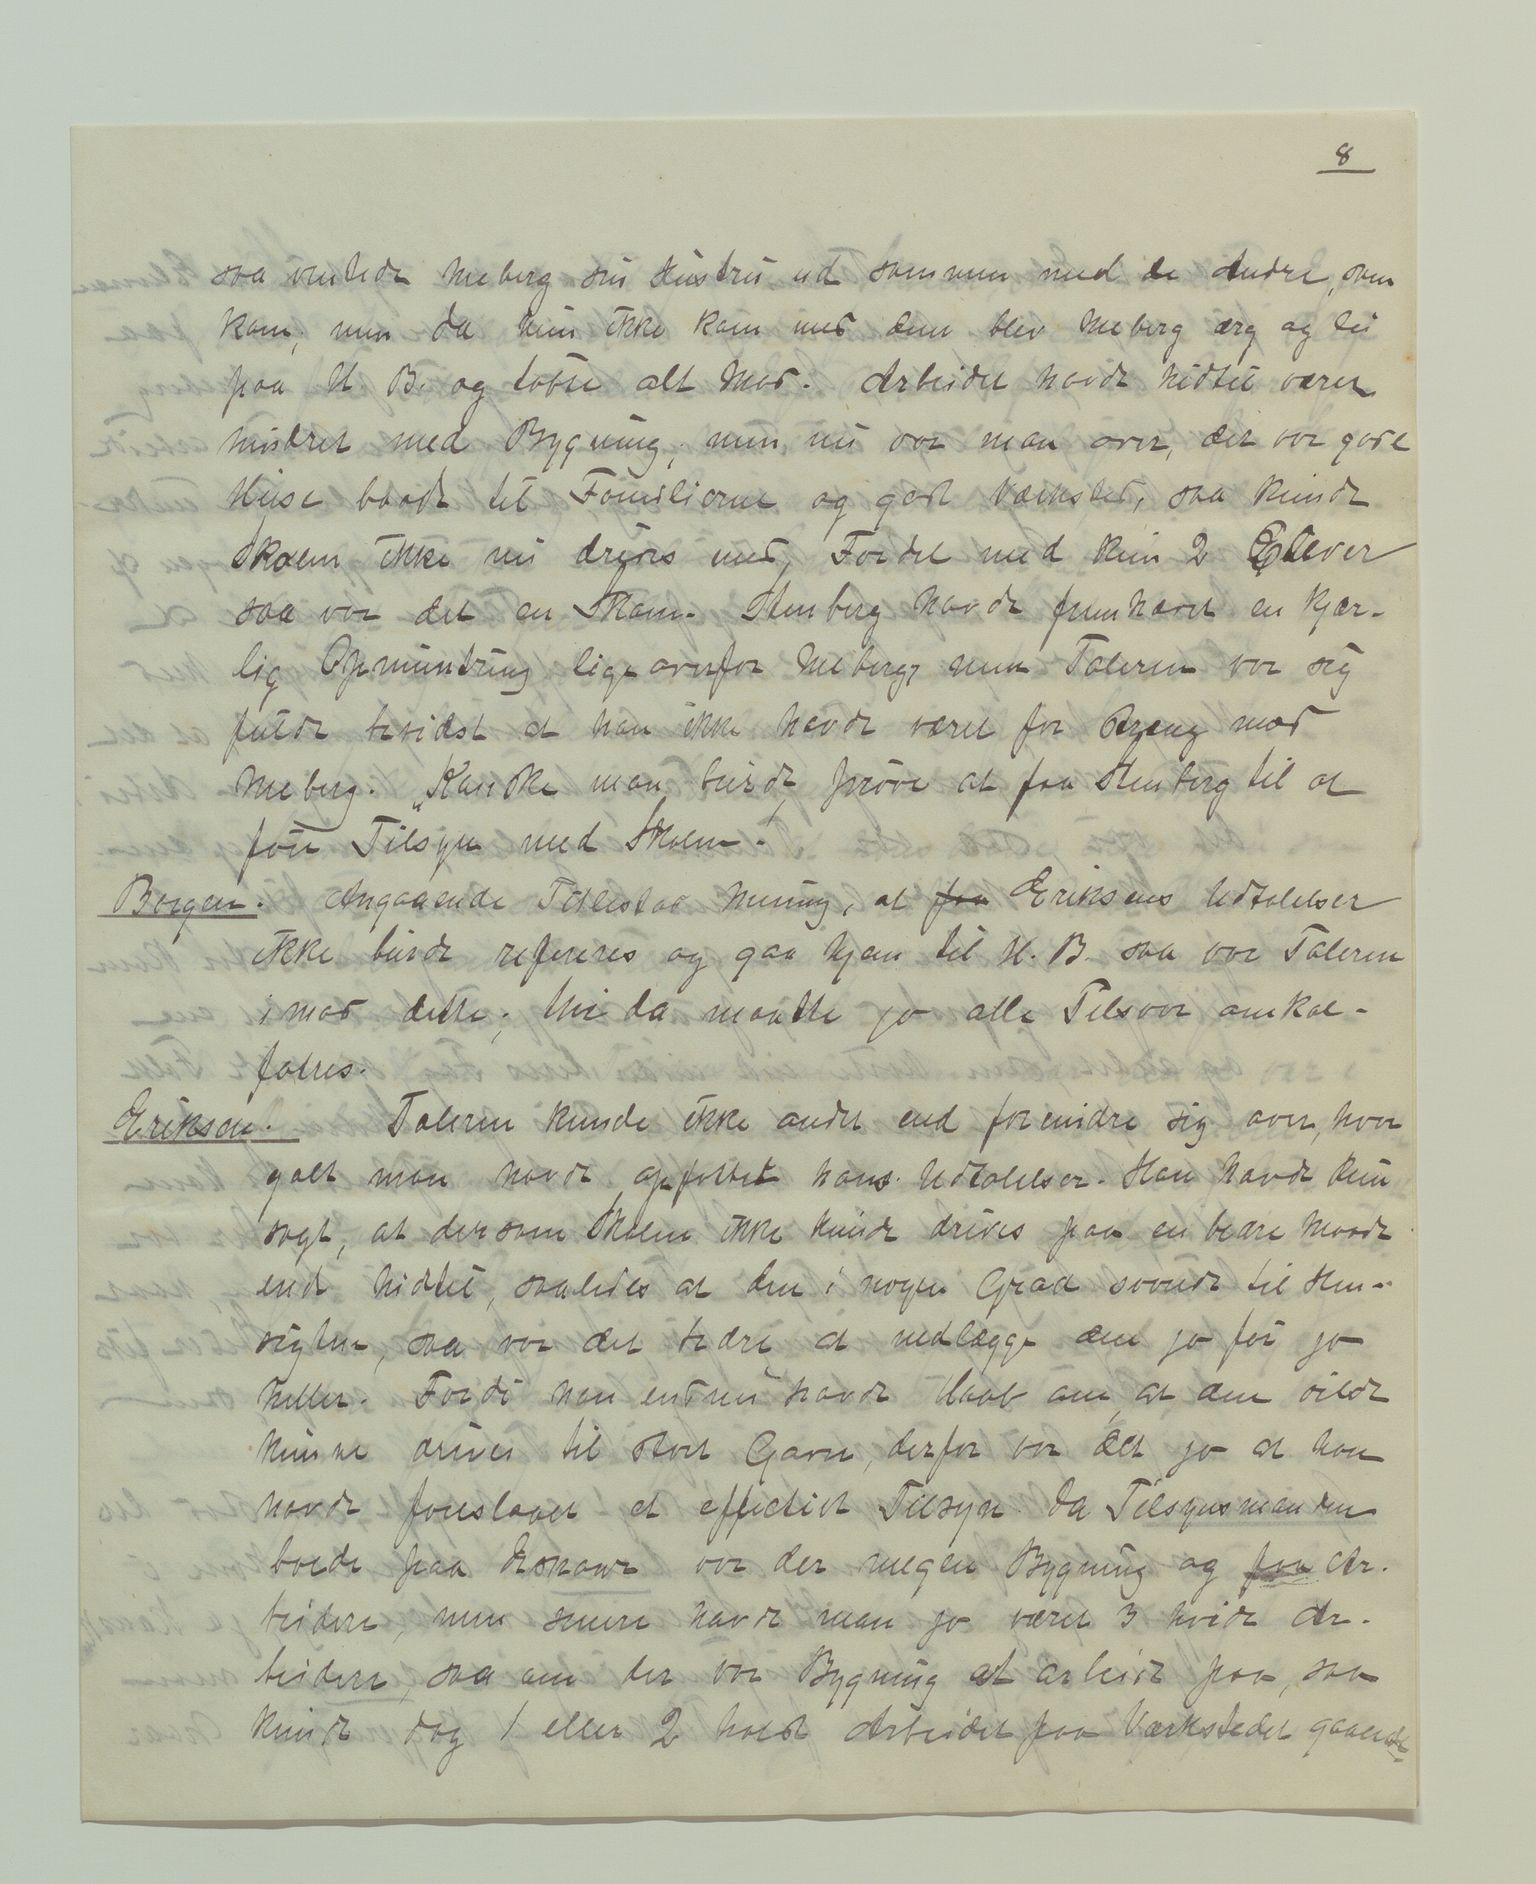 8
saa ventede Meberg sin Hustru ud sammen med de Andre, som
kom, men da hun ikke kom med dem blev Meberg arg og lei
paa H. B. og tabte alt Mod. Arbeidet havde hidtil været
hindret med Bygning, men nu var man over, det var gode
Huse baade til Familierne og godt Værksted, saa kunde
Skolen ikke nu drives med Fordel med kun 2 Elever
saa var det en Skam. Stenberg havde fremhævet en kjær-
lig Opmuntring ligeoverfor Meberg, men Taleren var sig
fuldt bevidst at han ikke havde været for streng mod
Meberg. "Kanske man burde prøve at faa Stenberg til at
føre Tilsyn med Skolen."
Borgen. Angaaende Mening, at faa Eriksens Udtalelser
ikke burde refereres og gaa hjem til H. B. saa var Taleren
imod dette; thi da maatte jo alle Tilsvar omkal-
fatres.
Eriksen. Taleren kunde ikke andet end forundre sig over, hvor
galt man havde opfattet hans Udtalelser. Han havde kun
sagt, at dersom Skolen ikke kunde drives paa en bedre Maade
end hidtil, saaledes at den i nogen Grad svarede til Hen-
sigten, saa var det bedre at nedlægge den jo før jo
heller. Fordi han endnu havde Haab om, at den vilde
kunne drives til stort Gavn, derfor var det jo at han
havde foreslaaet et effectivt Tilsyn. Da Tilsynsmanden
boede paa Eshowe var der megen Bygning og faa Ar-
beidere, men senere havde man jo været 3 hvide Ar-
beidere, saa om der var Bygning at arbeide paa, saa
kunde dog 1 eller 2 holdt Arbeidet paa Værkstedet gaaende